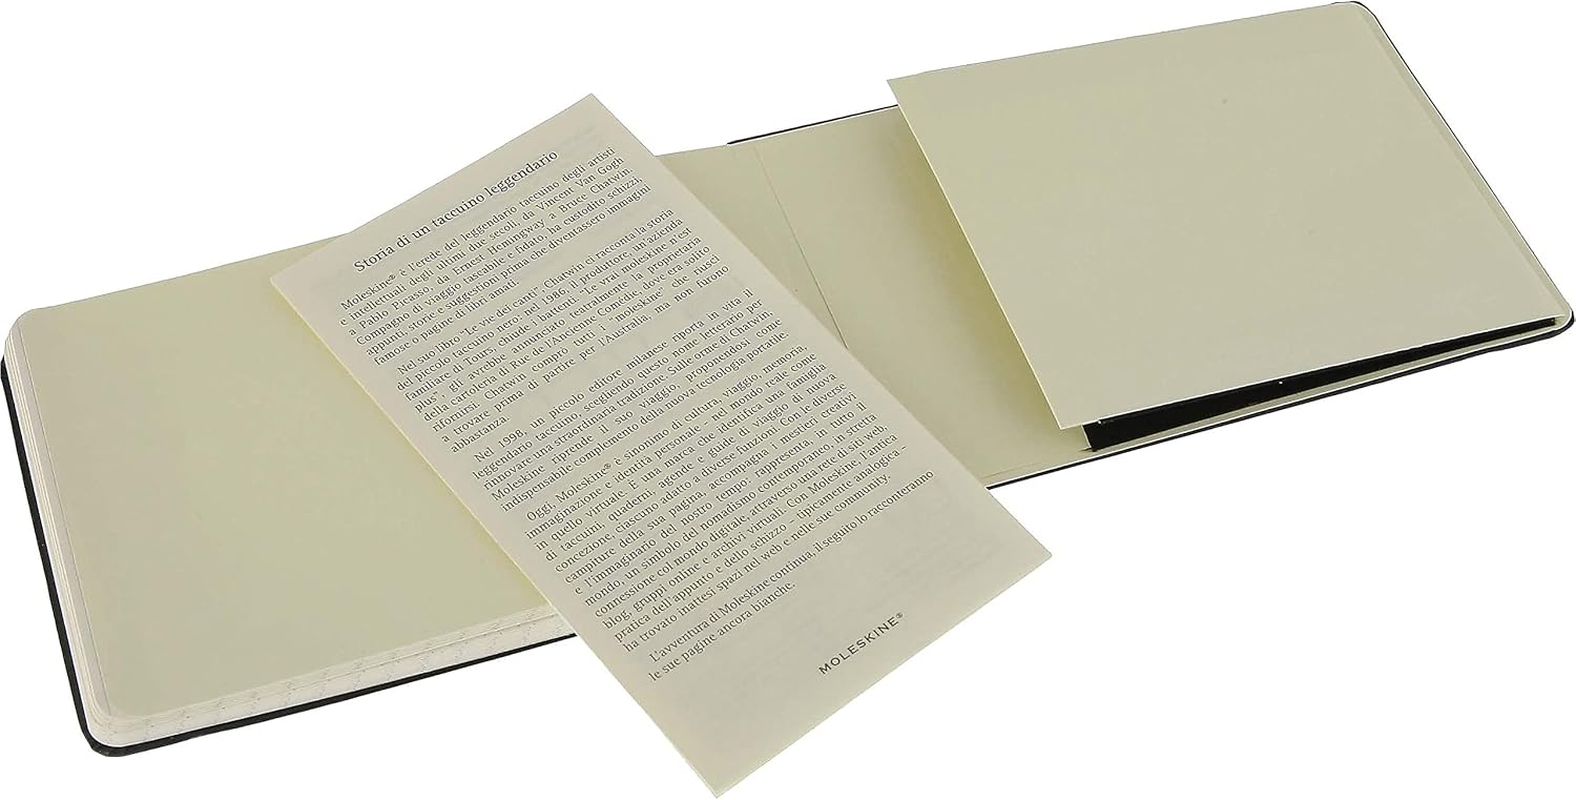 Storia di un taccuino leggendario
Moleskine® è l'erede del leggendario taccuino degli artisti
e intellettuali degli ultimi due secoli, da Vincent Van Gogh
a Pablo Picasso, da Ernest Hemingway a Bruce Chatwin.
Compagno di viaggio tascabile e fidato, ha custodito schizzi,
appunti, storie e suggestioni prima che diventassero immagini
famose o pagine di libri amati.
Nel suo libro "Le vie dei canti", Chatwin ci racconta la storia
del piccolo taccuino nero: nel 1986, il produttore, un'azienda
familiare di Tours, chiude i battenti. "Le vrai moleskine n'est
plus", gli avrebbe annunciato teatralmente la proprietaria
della cartoleria di Rue de l'Ancienne Comédie, dove era solito
rifornirsi. Chatwin comprò tutti i "moleskine" che riuscì
a trovare prima di partire per l'Australia, ma non furono
abbastanza.
Nel 1998, un piccolo editore milanese riporta in vita il
leggendario taccuino, scegliendo questo nome letterario per
rinnovare una straordinaria tradizione. Sulle orme di Chatwin,
Moleskine riprende il suo viaggio, proponendosi come
indispensabile complemento della nuova tecnologia portatile.
Oggi, Moleskine® è sinonimo di cultura, viaggio, memoria,
immaginazione e identità personale - nel mondo reale come
in quello virtuale. È una marca che identifica una famiglia
di taccuini, quaderni, agende e guide di viaggio di nuova
concezione, ciascuno adatto a diverse funzioni. Con le diverse
campiture della sua pagina, accompagna i mestieri creativi
e l'immaginario del nostro tempo: rappresenta, in tutto il
mondo, un simbolo del nomadismo contemporaneo, in stretta
connessione col mondo digitale, attraverso una rete di siti web,
blog, gruppi online e archivi virtuali. Con Moleskine, l'antica
pratica dell'appunto e dello schizzo – tipicamente analogica –
ha trovato inattesi spazi nel web e nelle sue community.
L'avventura di Moleskine continua, il seguito lo racconteranno
le sue pagine ancora bianche.
MOLESKINE®